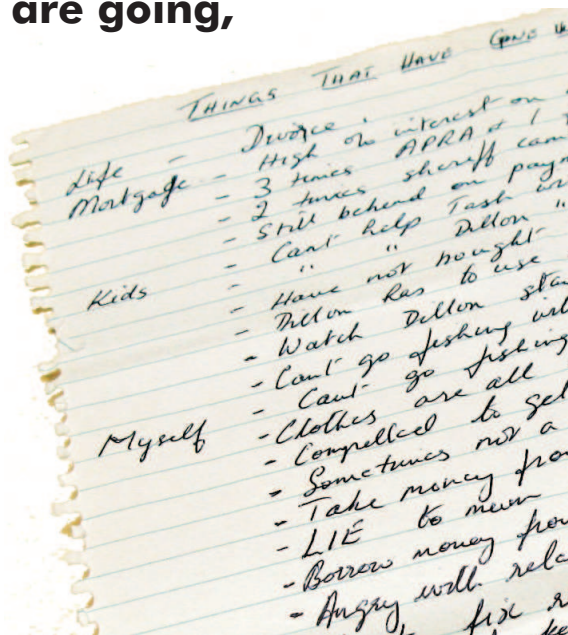 are going,
THINGS THAT HAVE GONE
Life - Divorce
Mortgage - High % interest on
- 3 times APRA + 1
- 2 times sheriff cam
- Still behind on paym
Kids - Cant help Tash
- " " Dillon "
- Have not bought
- Dillon has to use
- Watch Dillon sta
- Cant go fishing wit
Myself - Cant go fishing
- Clothes are all
- Compelled to ge
- Sometimes not a
- Take money fro
- LIE to mum
- Borrow money fro
- Angry with rela
fix